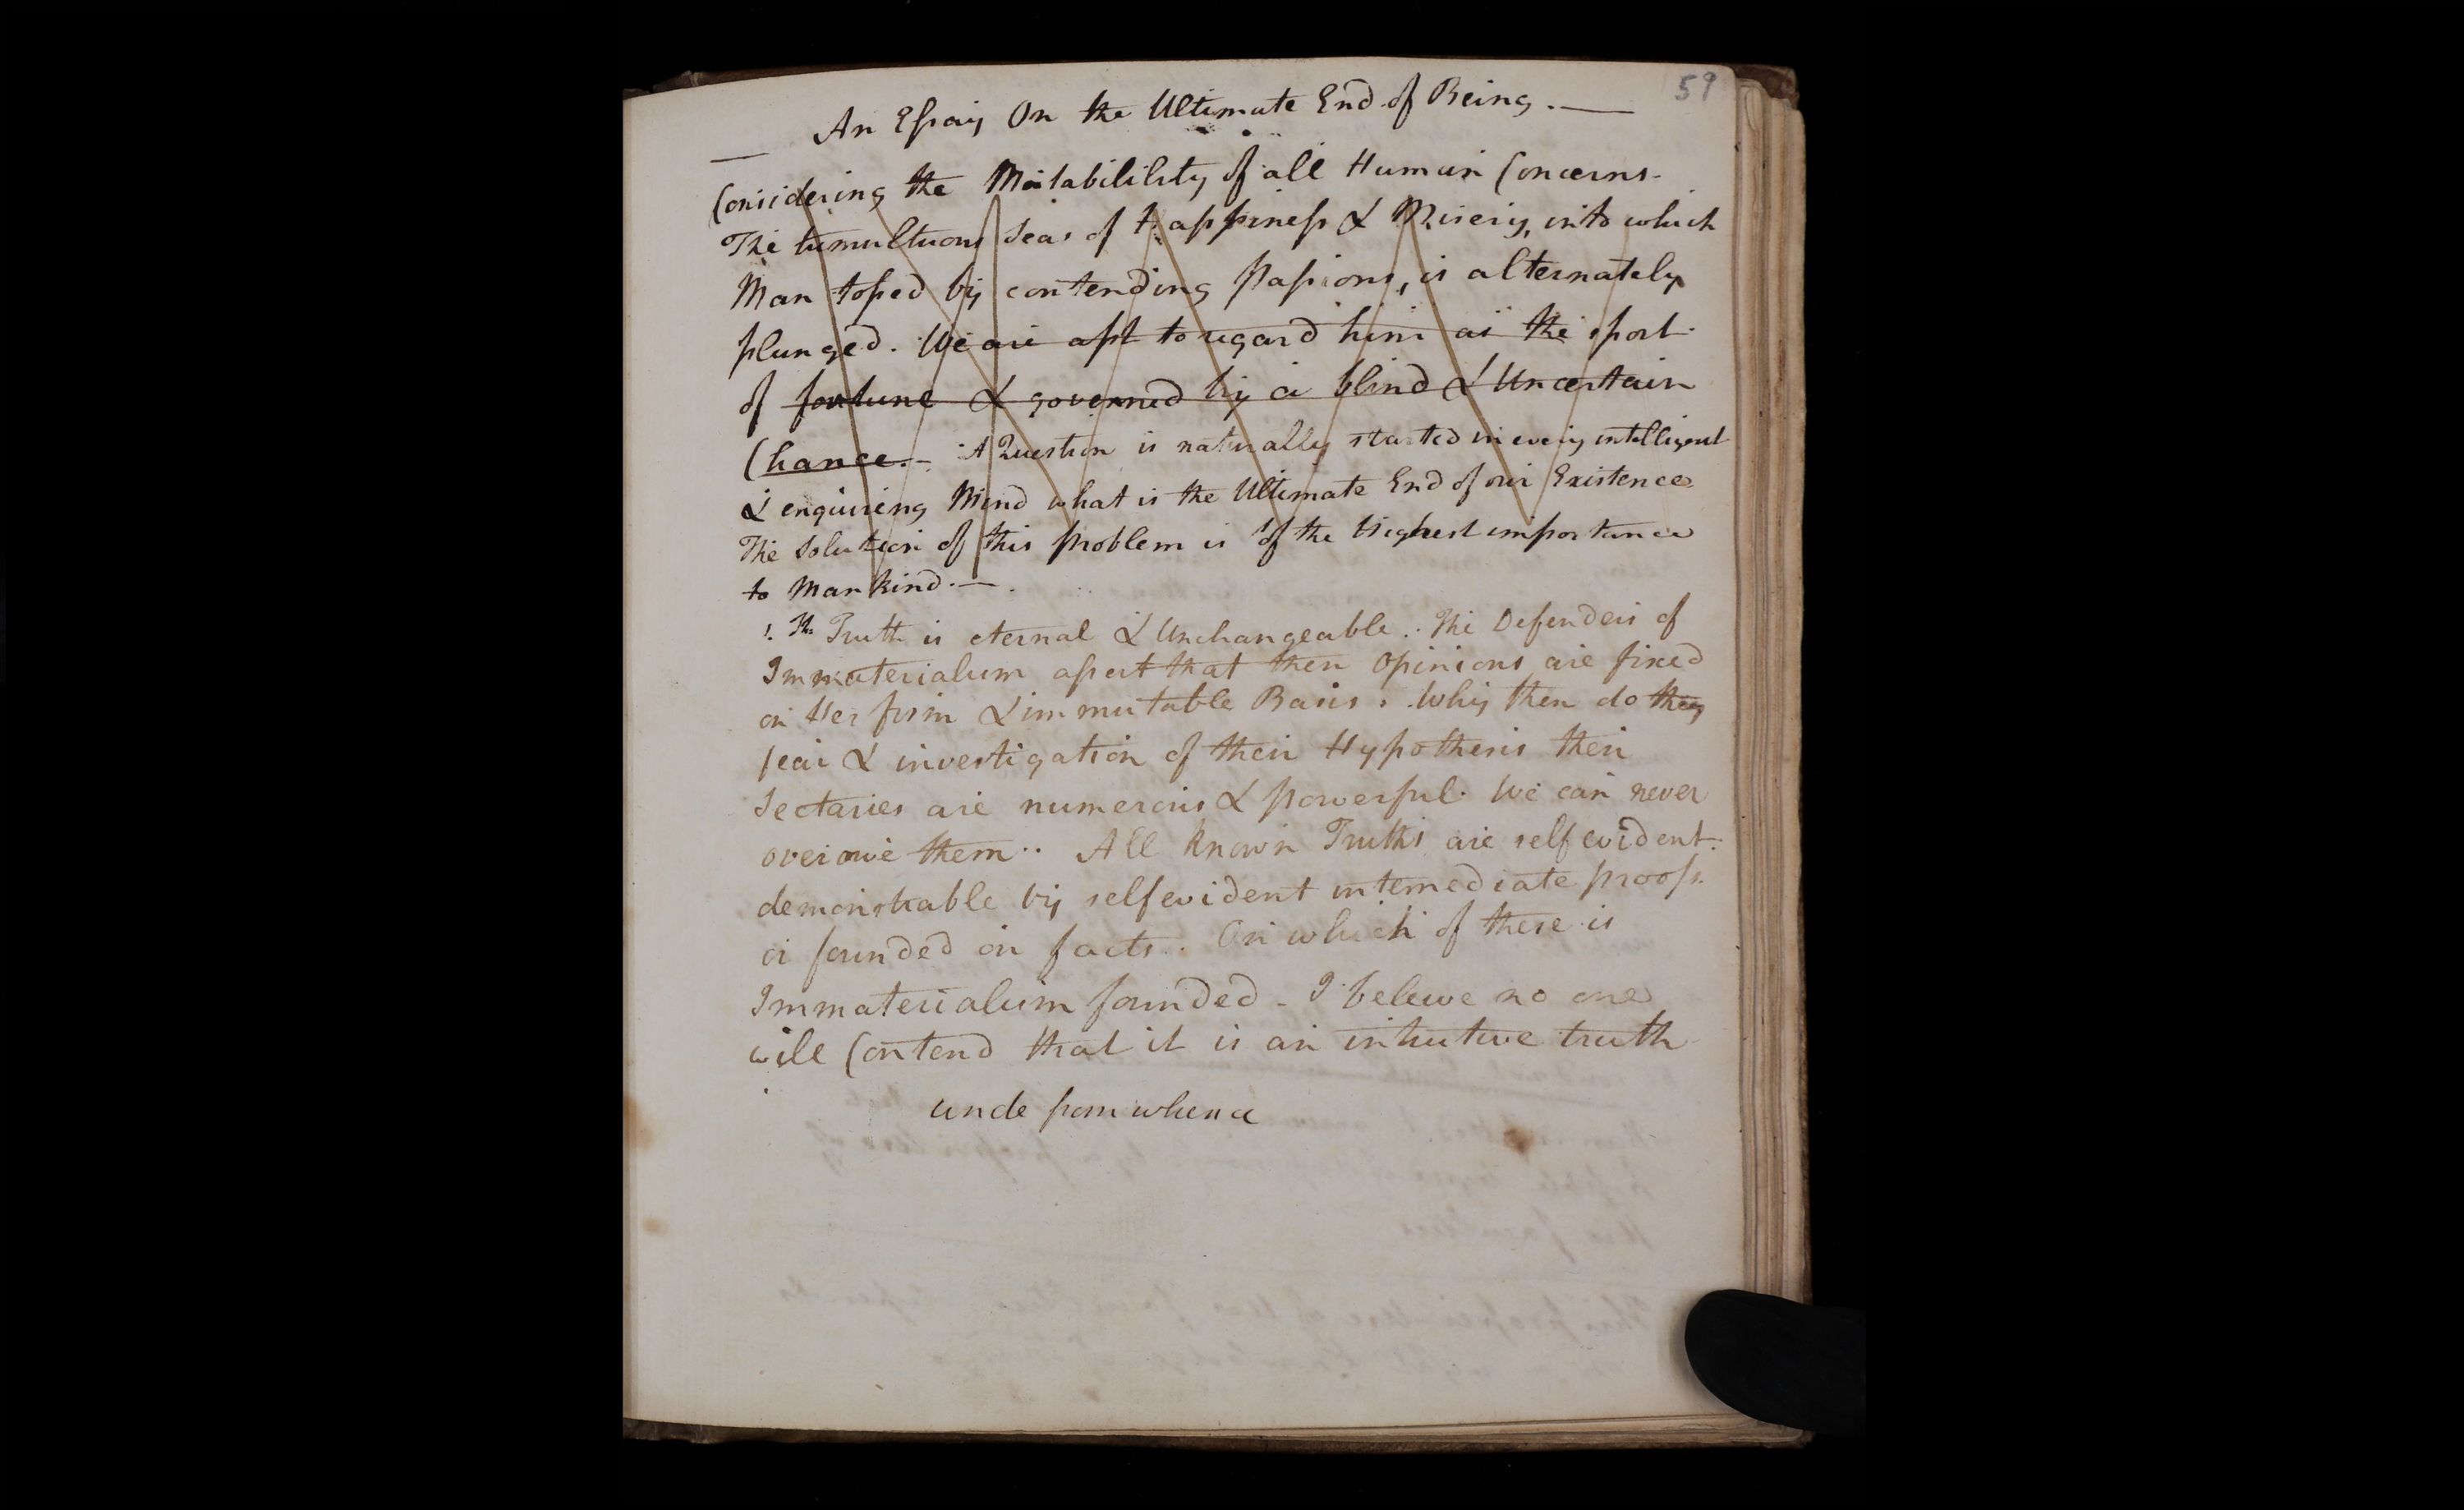 59
An Essay On the Ultimate End of Being. —
— Considering the Mutabilility of all Human Concerns.
The tumultuous Seas of Happiness & Misery, into which
Man tossed by contending Passions, is alternately
plunged. We are apt to regard him as the sport
of fortune & governed by a blind & Uncertain
Chance. — A Question is naturally started in every intelligent
& enquiring Mind what is the Ultimate End of our Existence
The Solution of this problem is of the highest importance
to Mankind. —
1. Th Truth is eternal & Unchangeable. The Defenders of
Immaterialism assert that their Opinions are fixed
on Her firm & immutable Basis. Why then do they
fear & investigation of their Hypothesis their
Sectaries are numerous & powerful. We can never
overawe them.. All known Truths are self evident.
demonstrable by selfevident intemediate proofs.
or founded on facts. On which of these is
Immaterialism founded - I beleive no one
will Contend that it is an intuitive truth
unde from whence